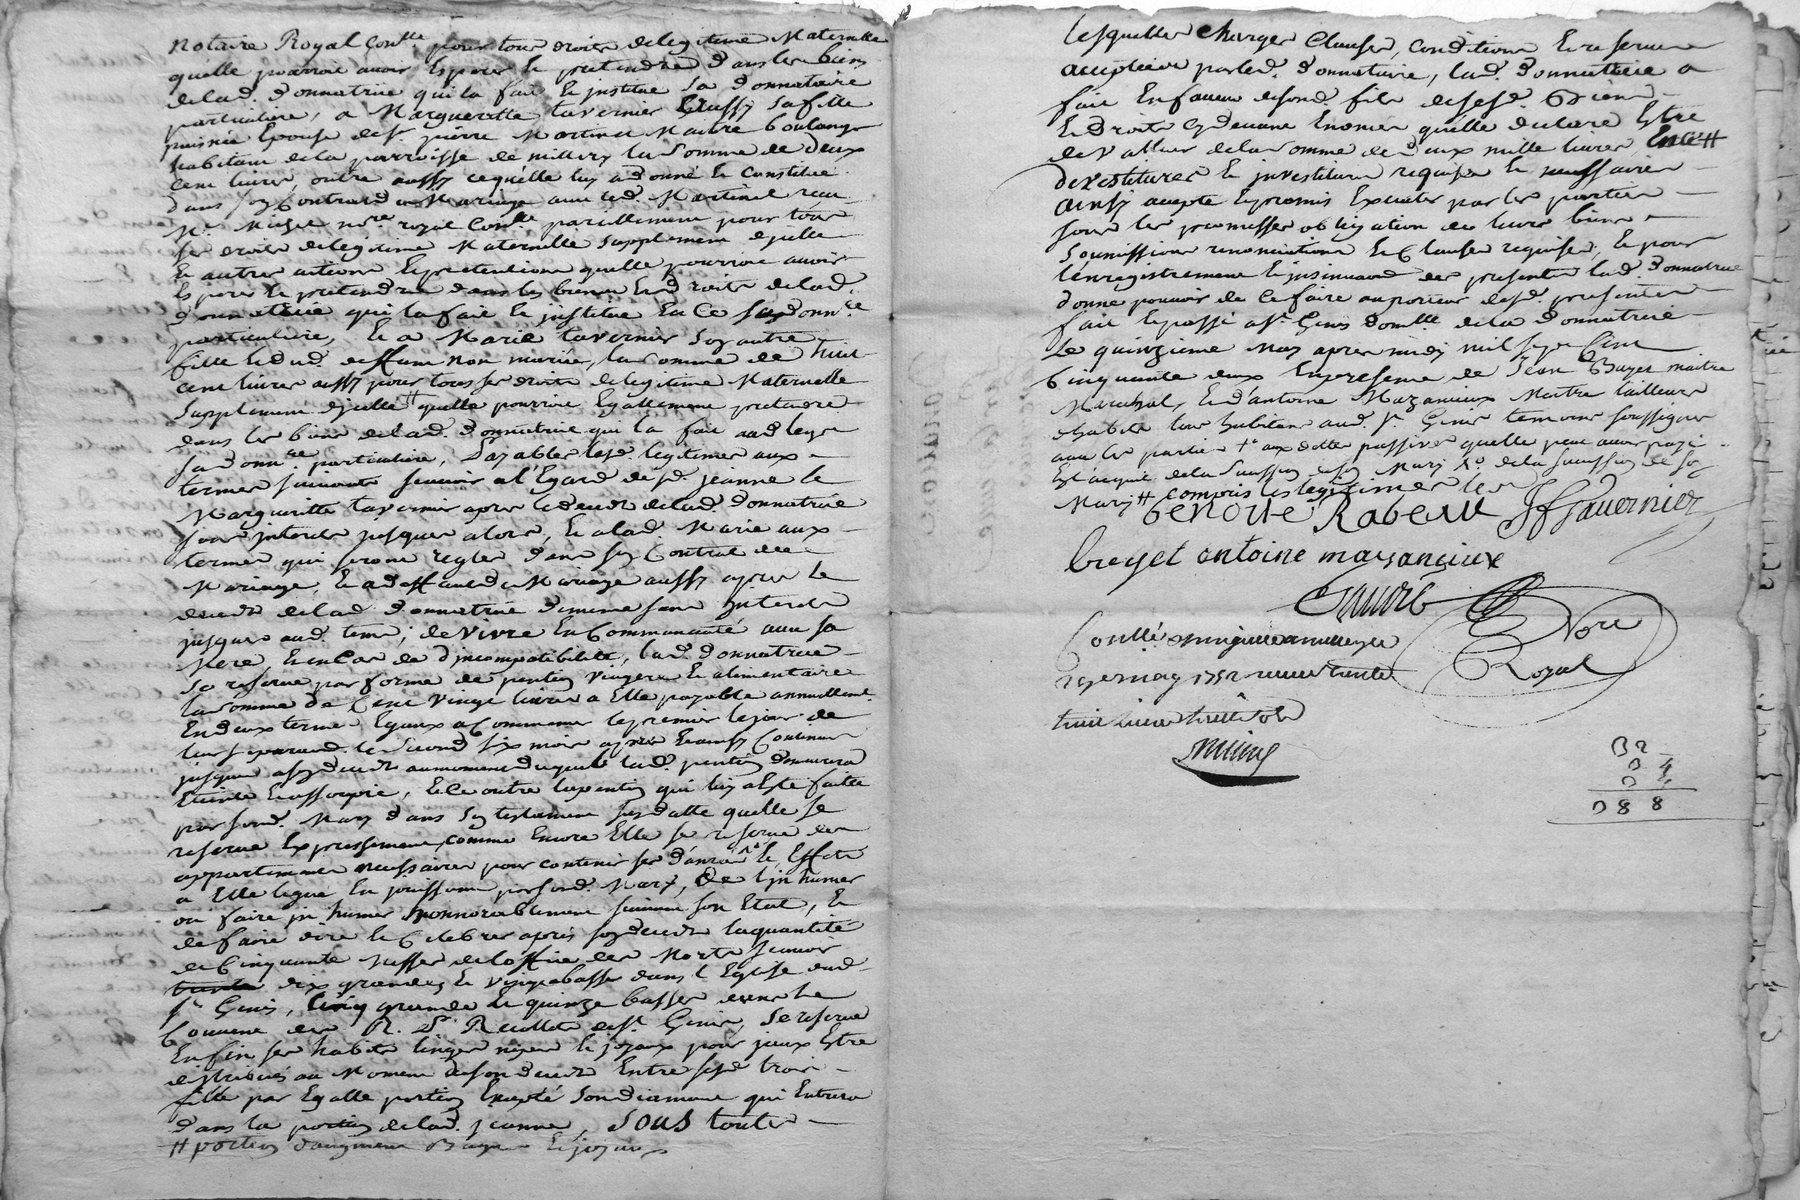 notaire Royal Con.lle pour tous droits de legitime Maternelle
quelle pourroit avoir Esperer Et pretendre dans les biens
de lad. donnatrice qui la fait Et institue Sa donnataire
particuliere, a Margueritte tavernier aussy Sa fille
puisnée Epouse de Sr. pierre Martinel Maitre boulanger
habitant de la parroisse de millery la Somme de deux
Cent livres, outre aussy ce quelle luy a donné Et Constitué
dans son Contract de Mariage avec led. Martinel reçu
Me. no.re royal Con.lle pareillement pour tous
ses droits de legitime Maternelle Supplement d'jcelle
Et autres actions Et pretentions quelle pourroit avoir
Esperer Et pretendre dans les biens Et droits de lad.
donnatrice qui la fait Et institue En Ce Sa donn.re
particuliere, Et a Marie tavernier Son autre
fille non mariée, la Somme de huit
cent livres aussy pour tous ses droits de legitime Maternelle
Supplement d'jcelle # quelle pourroit Egallement pretendre
dans les biens de lad. donnatrice qui la fait
Sa donn.re particuliere, Payables lesd. legitimes aux
termes suivants scavoir a l'Egard desd. jeanne Et
Margueritte tavernier apres le deced de lad. donnatrice
sans jnterets jusques alors, Et a lad. Marie aux
termes qui seront reglés dans son Contrat de
Mariage, Et a deffaut de Mariage aussy apres le
deced de lad. donnatrice de meme sans jnterets
jusques aud. tems, de vivre En Communauté avec sa
Mere, Et En Cas de d'incompatibilité, lad. donnatrice
Se reserve par forme de pention viagere Et alimentaire
la Somme de Cent vingt livres a Elle payable annuellement
En deux termes Egaux a Commencer le premier le jour de
leur separaon. le second six mois apres Et ainsy Continuer
jusques a son deced au moment duquel lad. pention demeurera
Eteinte Et assoupie, Et Ce outre la pention qui luy a Este faitte
par sond. Mary dans son testament susdatté quelle se
reserve Expressement, comme Encore Elle se reserve des
appartements necessaires pour contenir ses danrées Et Effets
a Elle legué En jouissance par sond. Mary, De l'jnhumer
ou faire jnhumer honnorablement suivant son Etat, Et
de faire dire Et Celebrer apres son deced la quantité
de Cinquante Messes de l'office des Morts scavoir
dix grandes Et vingt basses dans l'Eglise dud.
St. Genis, Cinq grandes Et quinze basses dans le
Couvent des R. P. Recollets de St. Genis, Se reserve
Enfin ses habits linges nipes Et joyaux pour jceux Estre
distribués au Moment de son deced Entre sesd. trois
filles par Egalle portion Excepté Son diamant qui Entrera
dans la portion de lad. jeanne, Sous toutes
# portion d'augment Bagues Et joyaux
lesquelles Charges Clauses, Conditions Et reserves
acceptées par led. donnataire, lad. donnatrice a
fait En faveur de sond. fils de sesd. Biens
Et droits Cydevant Enoncés quelle declare Estre
de valleur de la Somme de deux mille livres #
devestitures Et jnvestitures requises Et necessaires
ainsy accepté Et promis Executer par les parties
sous les promesses obligation de leurs biens
Soumissions renonciations Et Clauses requises, Et pour
l'enregistrement Et jnsinuaon. des presentes lad. donnatrice
donne pouvoir de Ce faire au porteur desd. presentes
fait Et passé a St. Genis domlle. de la donnatrice
Le quinzieme May apres midy mil sept Cent
Cinquante deux En presence de Jean Bayet maitre
Marechal, Et d'antoine Mazancieux Maitre tailleur
d'habits tous habitans aud. St. Genis temoins soussignés
avec les parties + aux dettes passives quelle peut avoir payé
Et acquité de la Succession de son Mary de la succession de son
Mary # compris les legitimes
benoite Rabeau JF Tavernier
breyet antoine mazancieux
Nore
Royal
Coullé a
may 1752 trente
huit livres
B2
0 4
0 4
0 8 8